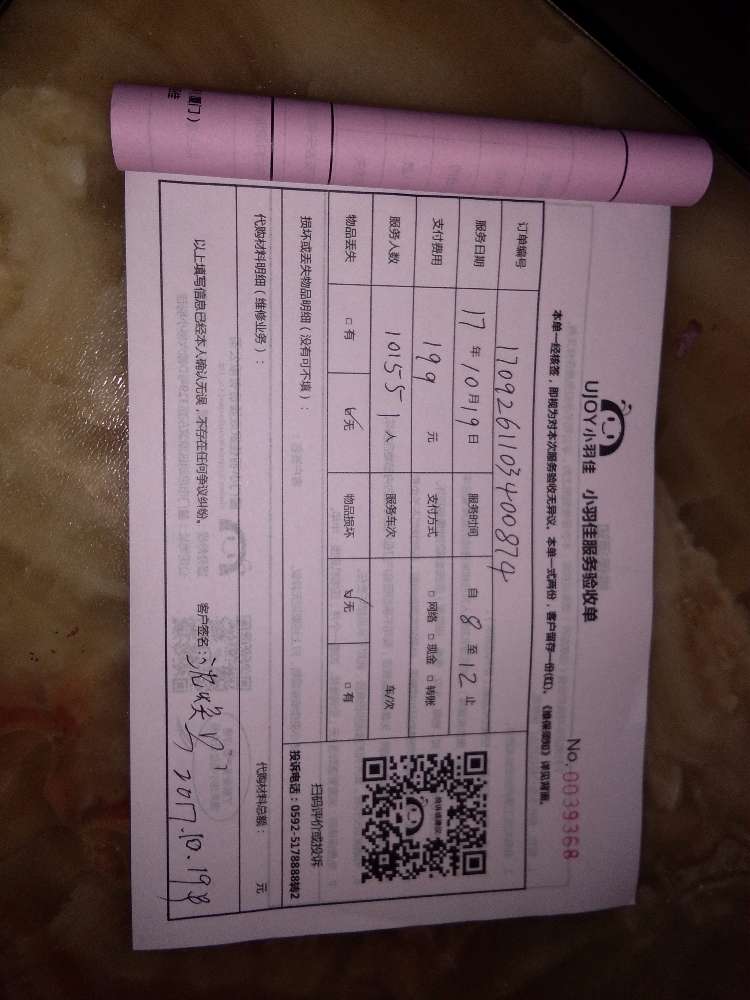 UJOY小羽佳 小羽佳服务验收单
No. 0039368
本单一经核签，即视为对本次服务验收无异议。本单一式两份，客户留存一份(红)。《维保须知》详见背面。
订单编号 1709261103400874
服务日期 17 年 10 月 19 日 服务时间 自 8 至 12 止
支付费用 199 元 支付方式 □ 网络 □ 现金 □ 转账
服务人数 10155 1 人 服务车次 车/次
物品丢失 □ 有 ☑ 无 物品损坏 ☑ 无 □ 有
扫码评价或投诉
投诉电话：0592-5178888转2
损坏或丢失物品明细（没有可不填）：
代购材料明细（维修业务）： 代购材料总额： 元
以上填写信息已经本人确认无误，不存在任何争议纠纷。 客户签名： 2017.10.19
厦门）